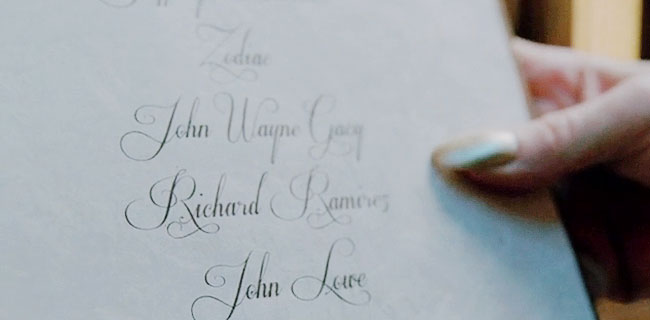 Zodiac
John Wayne Gacy
Richard Ramirez
John Lowe